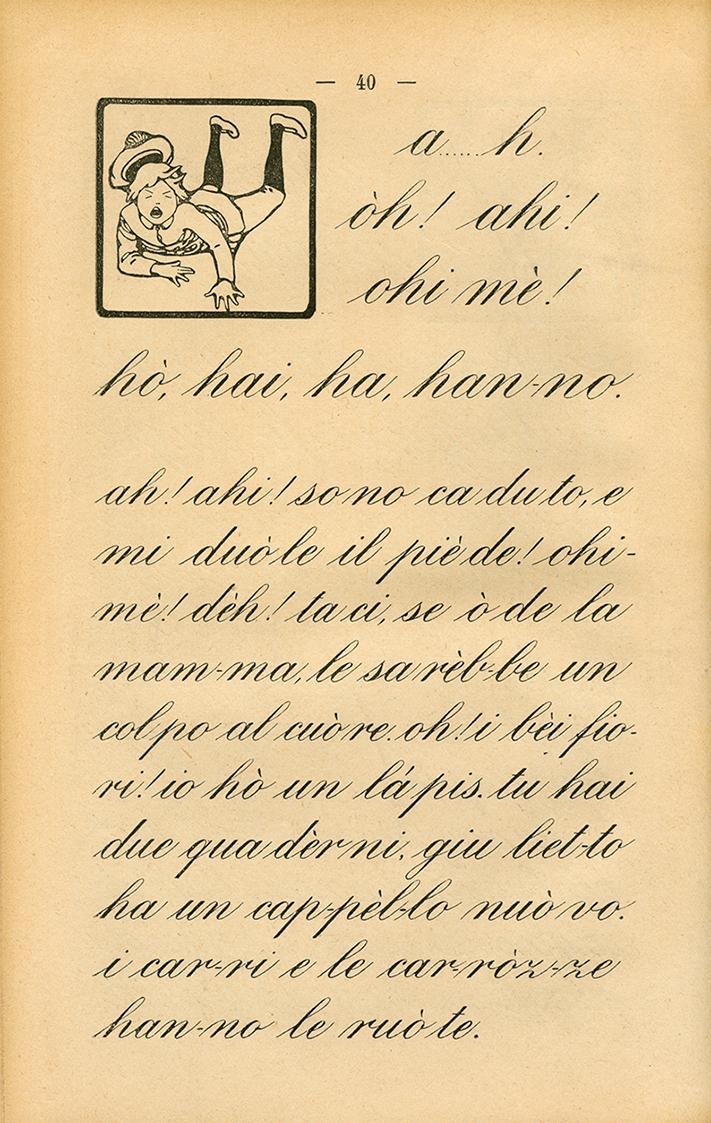 — 40 —
a......h.
òh! ahi!
ohi mè!
hò, hai, ha, han-no.
ah! ahi! so no ca du to, e
mi duò le il piè de! ohi-
mè! dèh! ta ci, se ò de la
mam-ma, le sa rèb-be un
col po al cuò re. oh! i bèi fio-
ri! io hò un lá pis. tu hai
due qua dèr ni. giu liet-to
ha un cap-pèl-lo nuò vo.
i car-ri e le car-ròz-ze
han-no le ruò te.